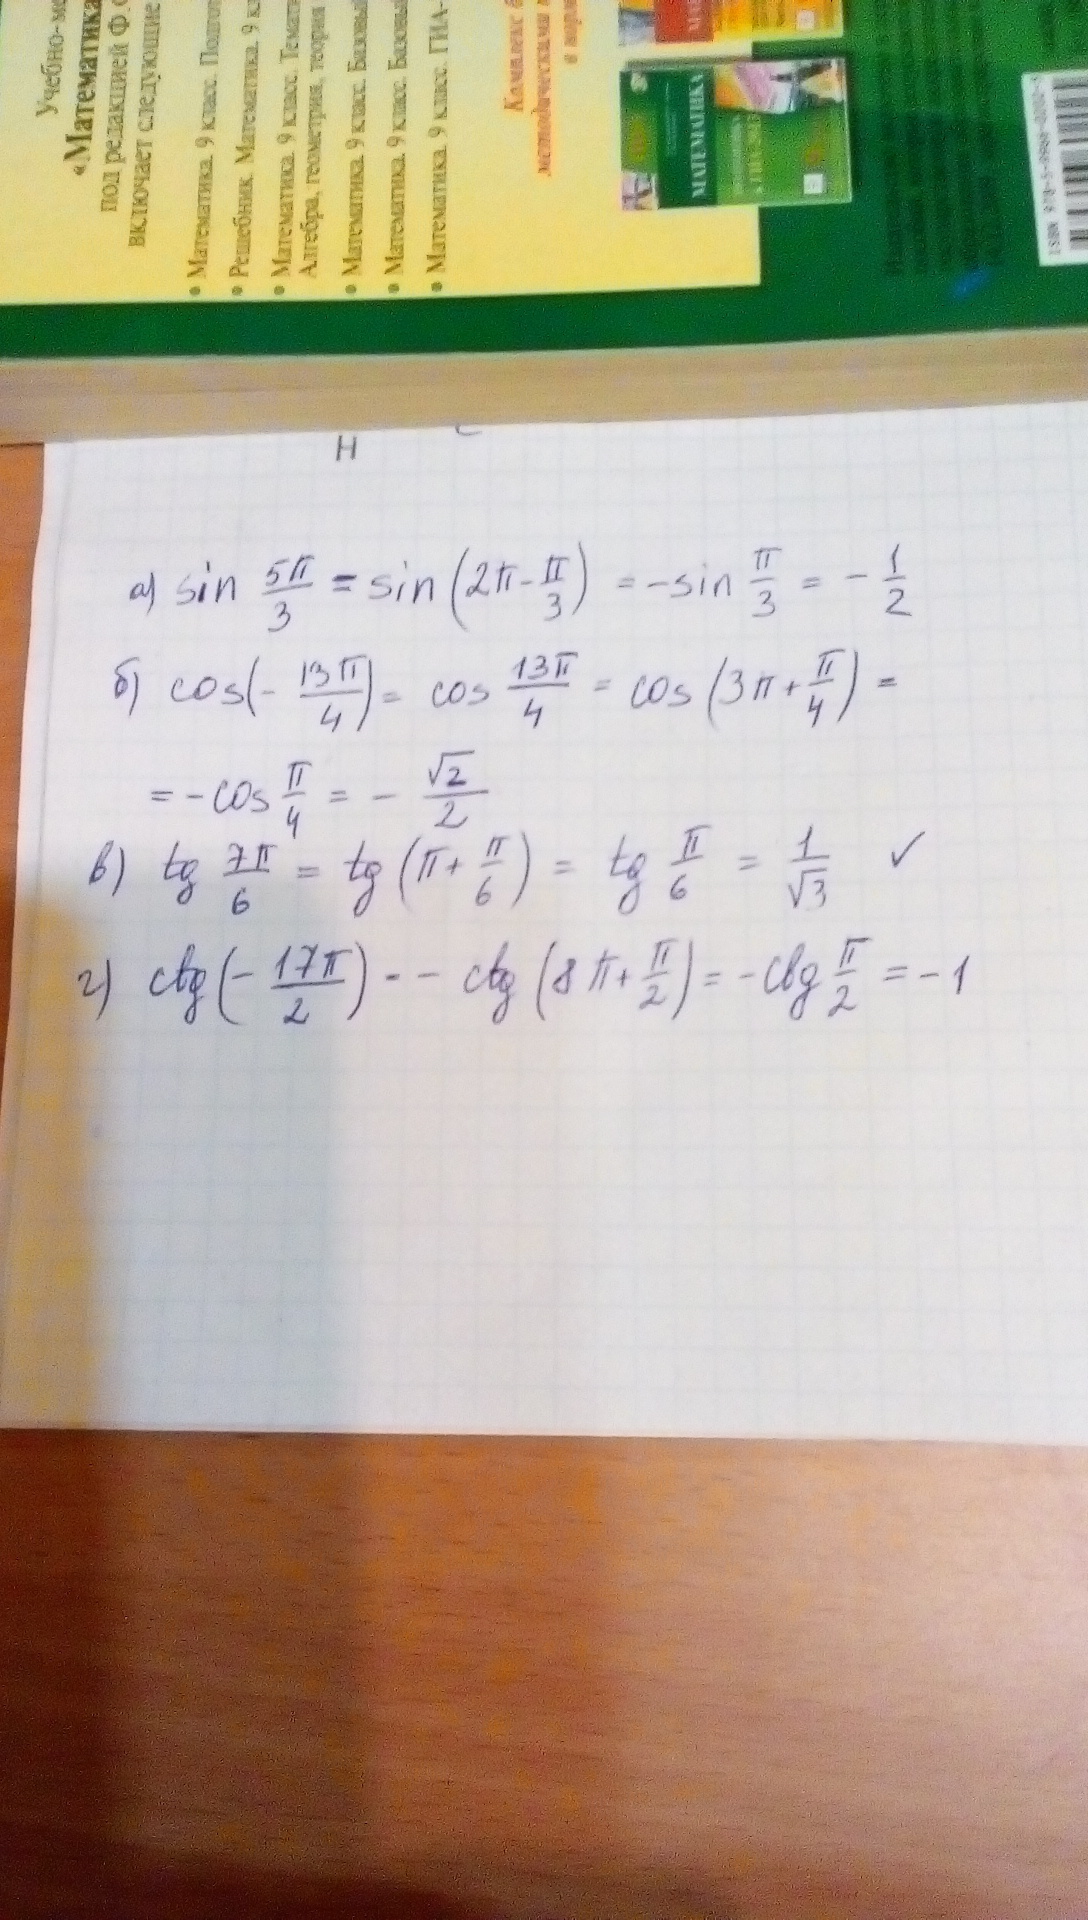 Учебно-ме
«Математика
под редакцией Ф.
включает следующие
• Математика. 9 класс.
• Решебник. Математика. 9
• Математика. 9 класс.
Алгебра, геометрия, теория
• Математика. 9 класс. Базовый
• Математика. 9 класс. Базовый
• Математика. 9 класс. ГИА-
Комплекс
методическими
МАТЕМАТИКА
ISBN
H
а) sin 5π/3 = sin (2π - π/3) = -sin π/3 = - 1/2
б) cos(- 13π/4) = cos 13π/4 = cos (3π + π/4) =
= - cos π/4 = - √2/2
в) tg 7π/6 = tg (π + π/6) = tg π/6 = 1/√3 ✓
г) ctg (- 17π/2) = - ctg (8π + π/2) = - ctg π/2 = - 1